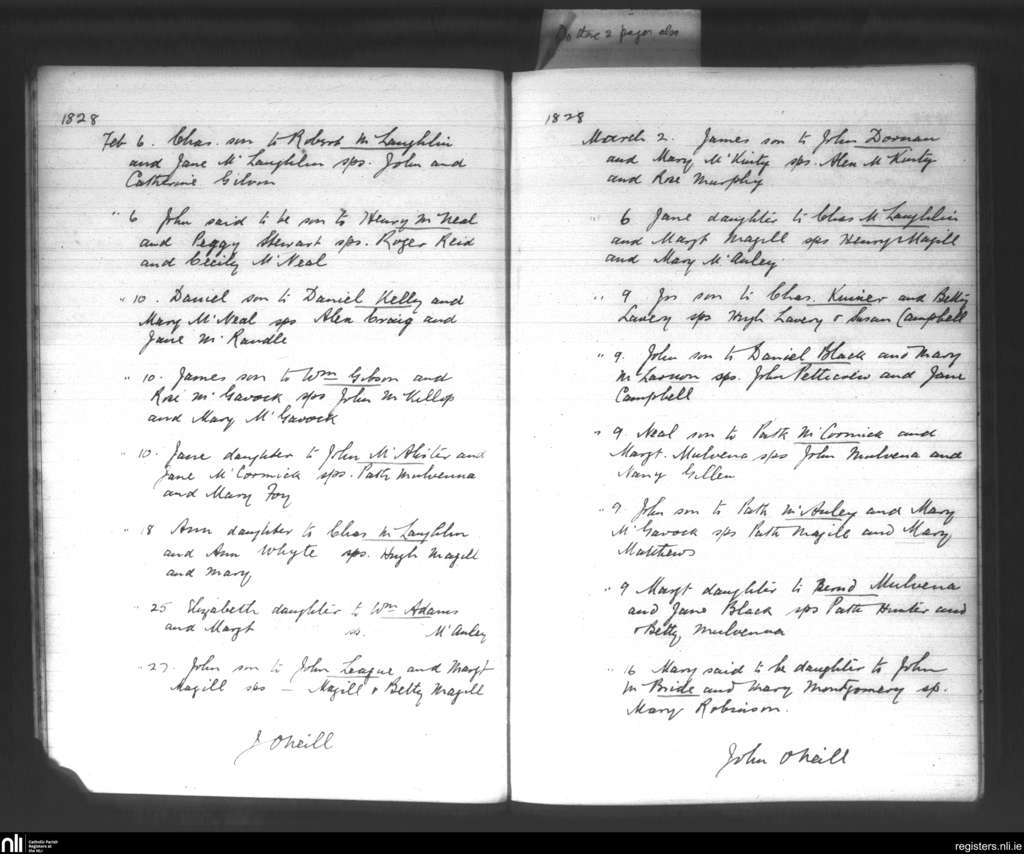 Do these 2 pages also
1828
Feb 6. Chas. son to Robert McLaughlin
and Jane McLaughlin sps. John and
Catherine Gilvon
" 6 John said to be son to Henry McNeal
and Peggy Stewart sps. Roger Reid
and Cecily McNeal
" 10. Daniel son to Daniel Kelly and
Mary McNeal sps Alex Craig and
Jane McRandle
" 10. James son to Wm Gibson and
Rose McGavock sps John McKillop
and Mary McGavock
" 10. Jane daughter to John McAlister and
Jane McCormick sps. Patk Mulvenna
and Mary Foy
" 18 Ann daughter to Chas McLaughlin
and Ann Whyte sps. Hugh Magill
and Mary
" 25 Elizabeth daughter to Wm Adams
and Margt ss. McAuley
" 27. John son to John League and Margt
Magill sps — Magill & Betty Magill
J ONeill
1828
March 2. James son to John Dornan
and Mary McKinty sps. Alex McKinty
and Rose Murphy
" 6 Jane daughter to Chas McLaughlin
and Margt Magill sps Henry Magill
and Mary McAuley
" 9 Jn son to Chas. and Betty
Lavery sps Hugh Lavery & Susan Campbell
" 9. John son to Daniel Black and Mary
sps. John Petticrew and Jane
Campbell
" 9 Neal son to Patk McCormick and
Margt. Mulvena sps John Mulvena and
Nancy Gillen
" 9 John son to Patk McAuley and Mary
McGavock sps Patk Magill and Mary
Matthews
" 9 Margt daughter to Bernd Mulvena
and Jane Black sps Patk Hunter and
Betty Mulvenna
" 16 Mary said to be daughter to John
McBride and Mary Montgomery sp.
Mary Robinson.
John ONeill
nli
Catholic Parish
Registers at
the NLI
registers.nli.ie